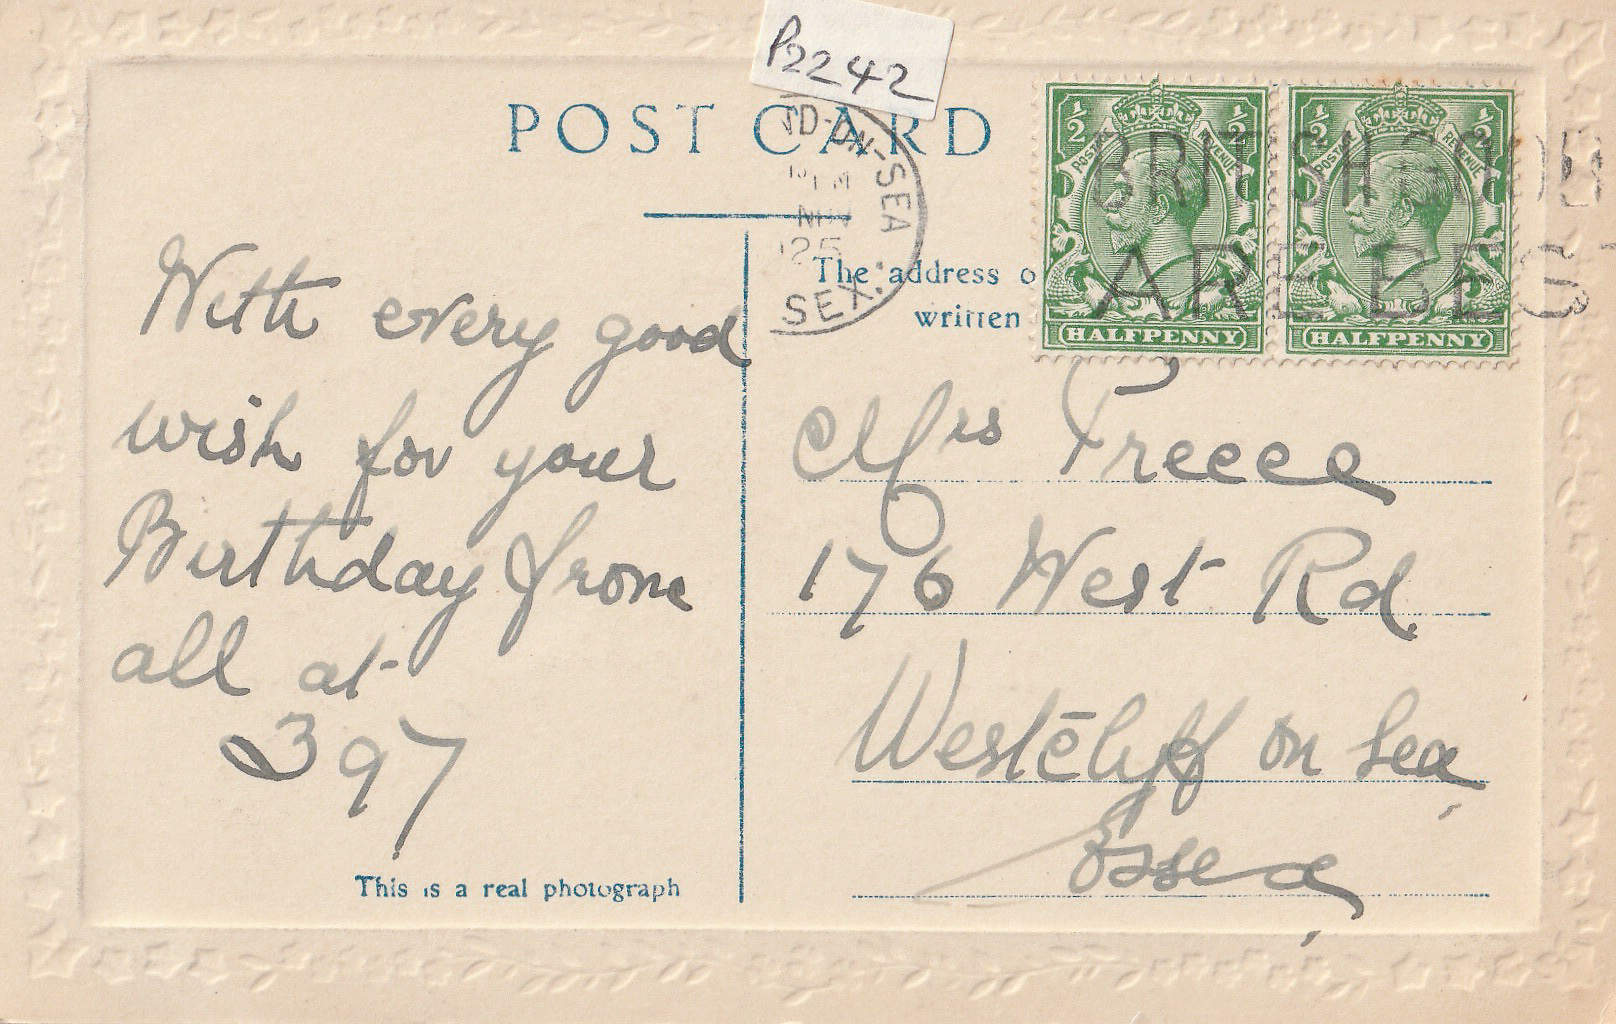 P2242
POST CARD
D-ON-SEA
25
SEX.
½ ½
½ ½
POSTAGE REVENUE
POSTAGE REVENUE
BRITISH GOODS
ARE BEST
HALFPENNY
HALFPENNY
The address o
written
With every good
wish for your
Birthday from
all at
397
This is a real photograph
Mrs Preece
176 West Rd
Westcliff on Sea
Essex